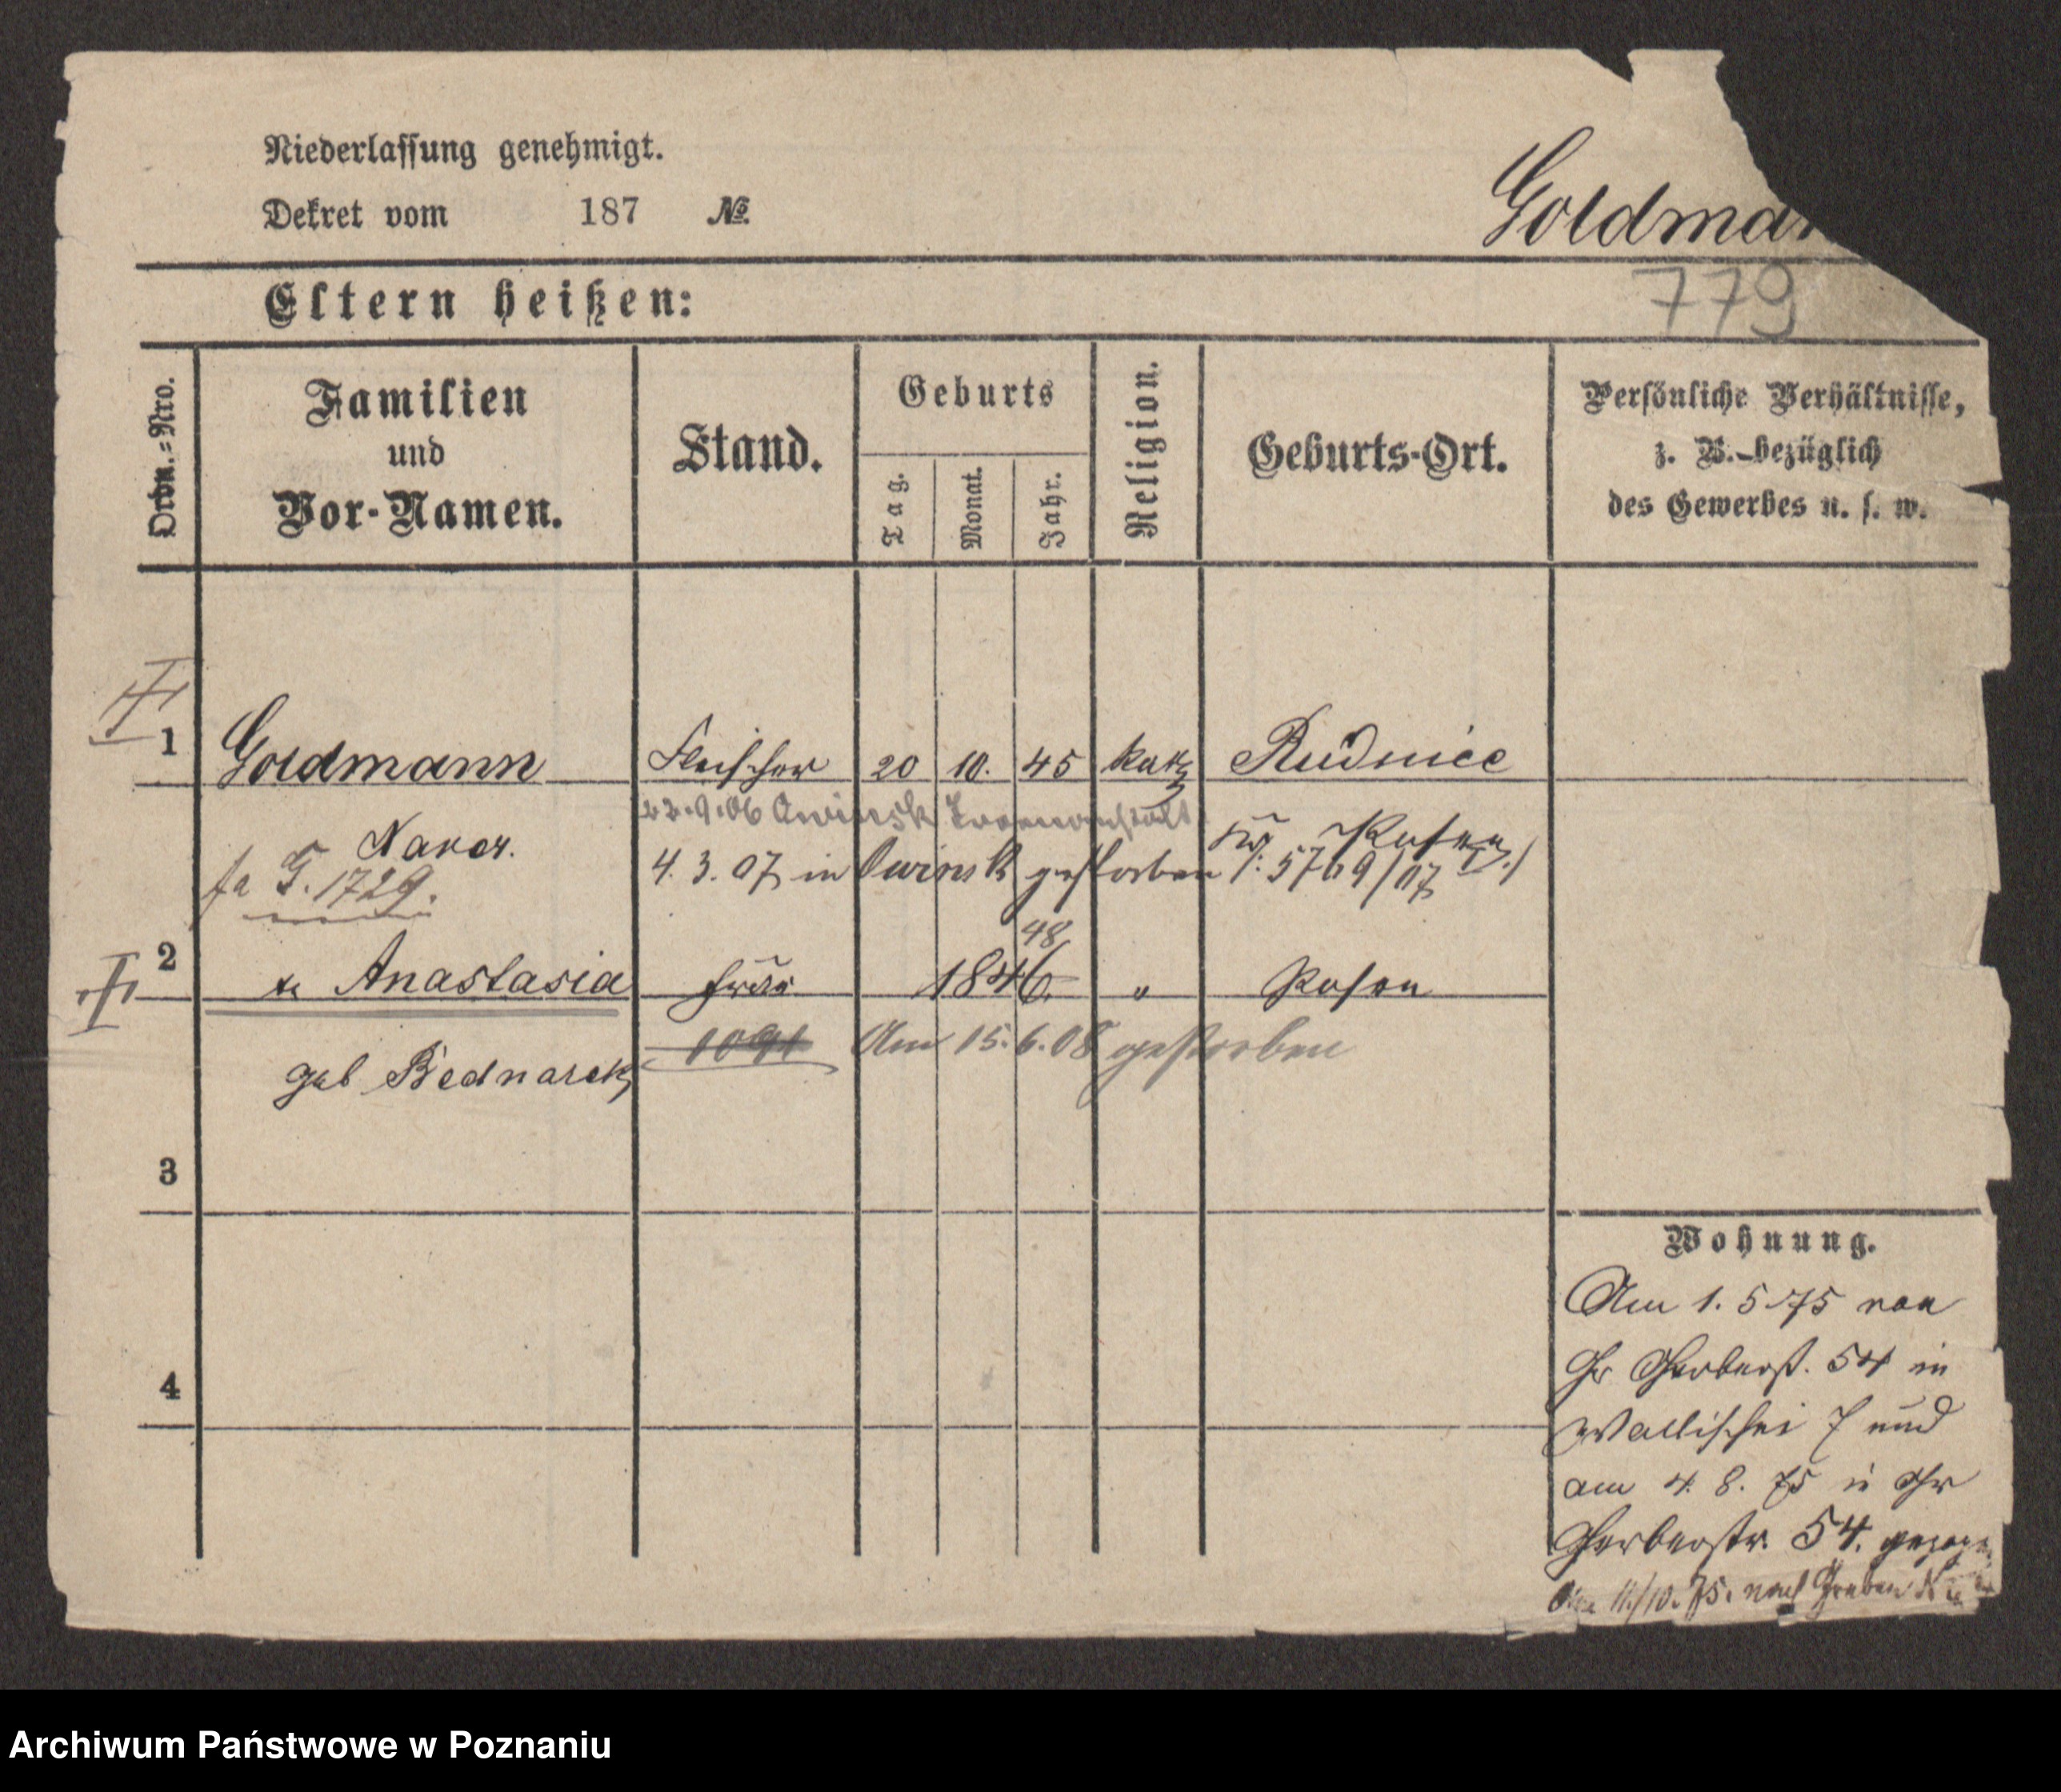 Niederlassung genehmigt.
Dekret vom 187 No.
Goldman
Eltern heißen:
779
Ordn.=Nro.
Familien
und
Vor-Namen.
Stand.
Geburts
Tag.
Monat.
Jahr.
Religion.
Geburts-Ort.
Persönliche Verhältnisse,
z. B. bezüglich
des Gewerbes u. s. w.
1 Goldmann Fleischer 20 10. 45 kath Rudnice
22.9.06 Owinsk Irrenanstalt
fa G. 1729.
4. 3. 07 in Owinsk gestorben /: 5769/07
48
2 Anastasia Frau 1846 " Posen
1091 Am 15.6.08 gestorben
geb Bednarek
3
4
Wohnung.
Am 1. 5 75 von
Gr Gerberst. 54 in
Wallischei 7 und
am 4. 8. 75 in Gr
Gerberstr. 54. gezogen
11/10. 75. nach Graben
Archiwum Państwowe w Poznaniu